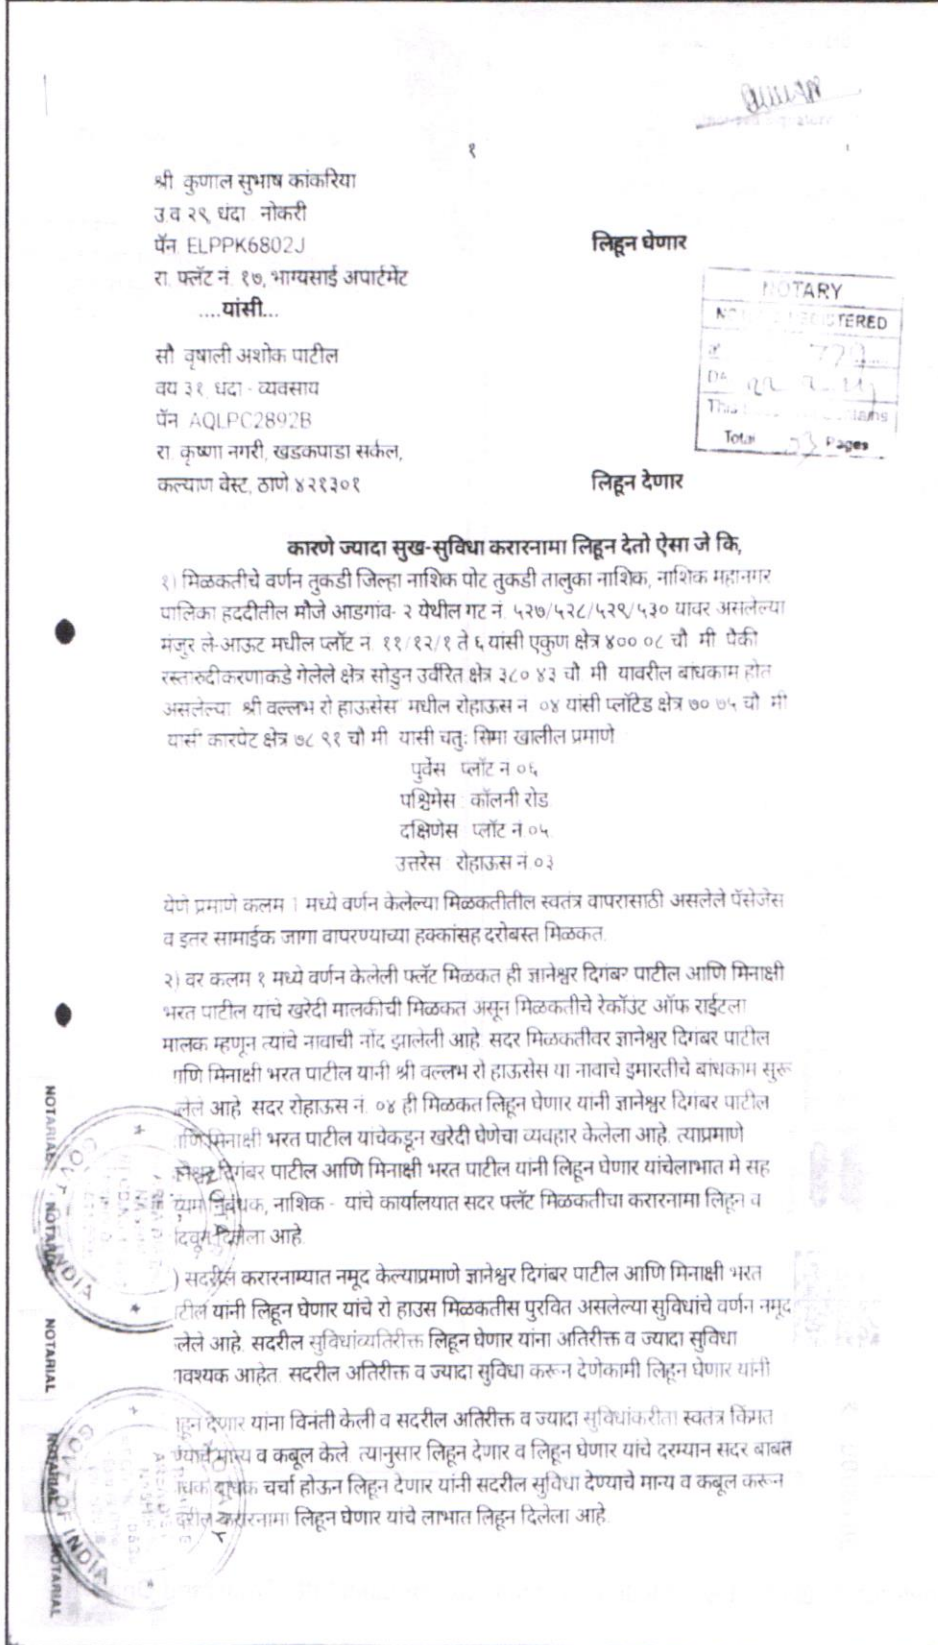 १
श्री कुणाल सुभाष कांकरिया
उ.व २९, धंदा नोकरी
पॅन ELPPK6802J
लिहून घेणार
रा. फ्लॅट नं. १७, भाग्यसाई अपार्टमेंट
....यांसी...
NOTARY
REGISTERED
सौ वृषाली अशोक पाटील
वय ३१, धदा - व्यवसाय
पॅन AQLPC2892B
रा. कृष्णा नगरी, खडकपाडा सर्कल,
Total Pages
कल्याण वेस्ट, ठाणे ४२१३०१
लिहून देणार
कारणे ज्यादा सुख-सुविधा करारनामा लिहून देतो ऐसा जे कि,
१) मिळकतीचे वर्णन तुकडी जिल्हा नाशिक पोट तुकडी तालुका नाशिक, नाशिक महानगर
पालिका हददीतील मौजे आडगांव- २ येथील गट नं. ५२७/५२८/५२९/५३० यावर असलेल्या
मंजुर ले-आऊट मधील प्लॉट न. ११/१२/१ ते ६ यांसी एकुण क्षेत्र ४०० ०८ चौ मी पैकी
रस्तारुदीकरणाकडे गेलेले क्षेत्र सोडुन उर्वरित क्षेत्र ३८० ४३ चौ मी यावरील बांधकाम होत
असलेल्या श्री वल्लभ रो हाऊसेस मधील रोहाऊस न ०४ यांसी प्लॉटेड क्षेत्र ७० ७५ चौ मी
यासी कारपेट क्षेत्र ७८ ९१ चौ मी यासी चतुः सिमा खालील प्रमाणे
पुर्वेस प्लॉट न ०६
पश्चिमेस कॉलनी रोड
दक्षिणेस प्लॉट नं ०५
उत्तरेस रोहाऊस नं.०३
येणे प्रमाणे कलम 1 मध्ये वर्णन केलेल्या मिळकतीतील स्वतंत्र वापरासाठी असलेले पॅसेजेस
व इतर सामाईक जागा वापरण्याच्या हक्कांसह दरोबस्त मिळकत.
२) वर कलम १ मध्ये वर्णन केलेली फ्लॅट मिळकत ही ज्ञानेश्वर दिगंबर पाटील आणि मिनाक्षी
भरत पाटील यांचे खरेदी मालकीची मिळकत असून मिळकतीचे रेकॉउंट ऑफ राईटला
मालक म्हणून त्यांचे नावाची नोंद झालेली आहे. सदर मिळकतीवर ज्ञानेश्वर दिगंबर पाटील
णि मिनाक्षी भरत पाटील यानी श्री वल्लभ रो हाऊसेस या नावाचे इमारतीचे बांधकाम सुरू
लेले आहे सदर रोहाऊस नं. ०४ ही मिळकत लिहून घेणार यांनी ज्ञानेश्वर दिगंबर पाटील
णि मिनाक्षी भरत पाटील यांचेकडून खरेदी घेणेचा व्यवहार केलेला आहे. त्याप्रमाणे
दिगंबर पाटील आणि मिनाक्षी भरत पाटील यांनी लिहून घेणार यांचेलाभात मे सह
निबंधक, नाशिक - यांचे कार्यालयात सदर फ्लॅट मिळकतीचा करारनामा लिहून व
दिलेला आहे.
) सदरील करारनाम्यात नमूद केल्याप्रमाणे ज्ञानेश्वर दिगंबर पाटील आणि मिनाक्षी भरत
टील यांनी लिहून घेणार यांचे रो हाउस मिळकतीस पुरवित असलेल्या सुविधांचे वर्णन नमूद
लेले आहे. सदरील सुविधांव्यतिरीक्त लिहून घेणार यांना अतिरीक्त व ज्यादा सुविधा
वश्यक आहेत. सदरील अतिरीक्त व ज्यादा सुविधा करून देणेकामी लिहून घेणार यांनी
हून देणार यांना विनंती केली व सदरील अतिरीक्त व ज्यादा सुविधांकरीता स्वतंत्र किंमत
मान्य व कबूल केले त्यानुसार लिहून देणार व लिहून घेणार यांचे दरम्यान सदर बाबत
चर्चा होऊन लिहून देणार यांनी सदरील सुविधा देण्याचे मान्य व कबूल करून
दरील करारनामा लिहून घेणार यांचे लाभात लिहून दिलेला आहे.
NOTARIAL
NOTARIAL
NOTARIAL
NOTARIAL
NOTARIAL
GOVT. OF INDIA
GOVT. OF INDIA